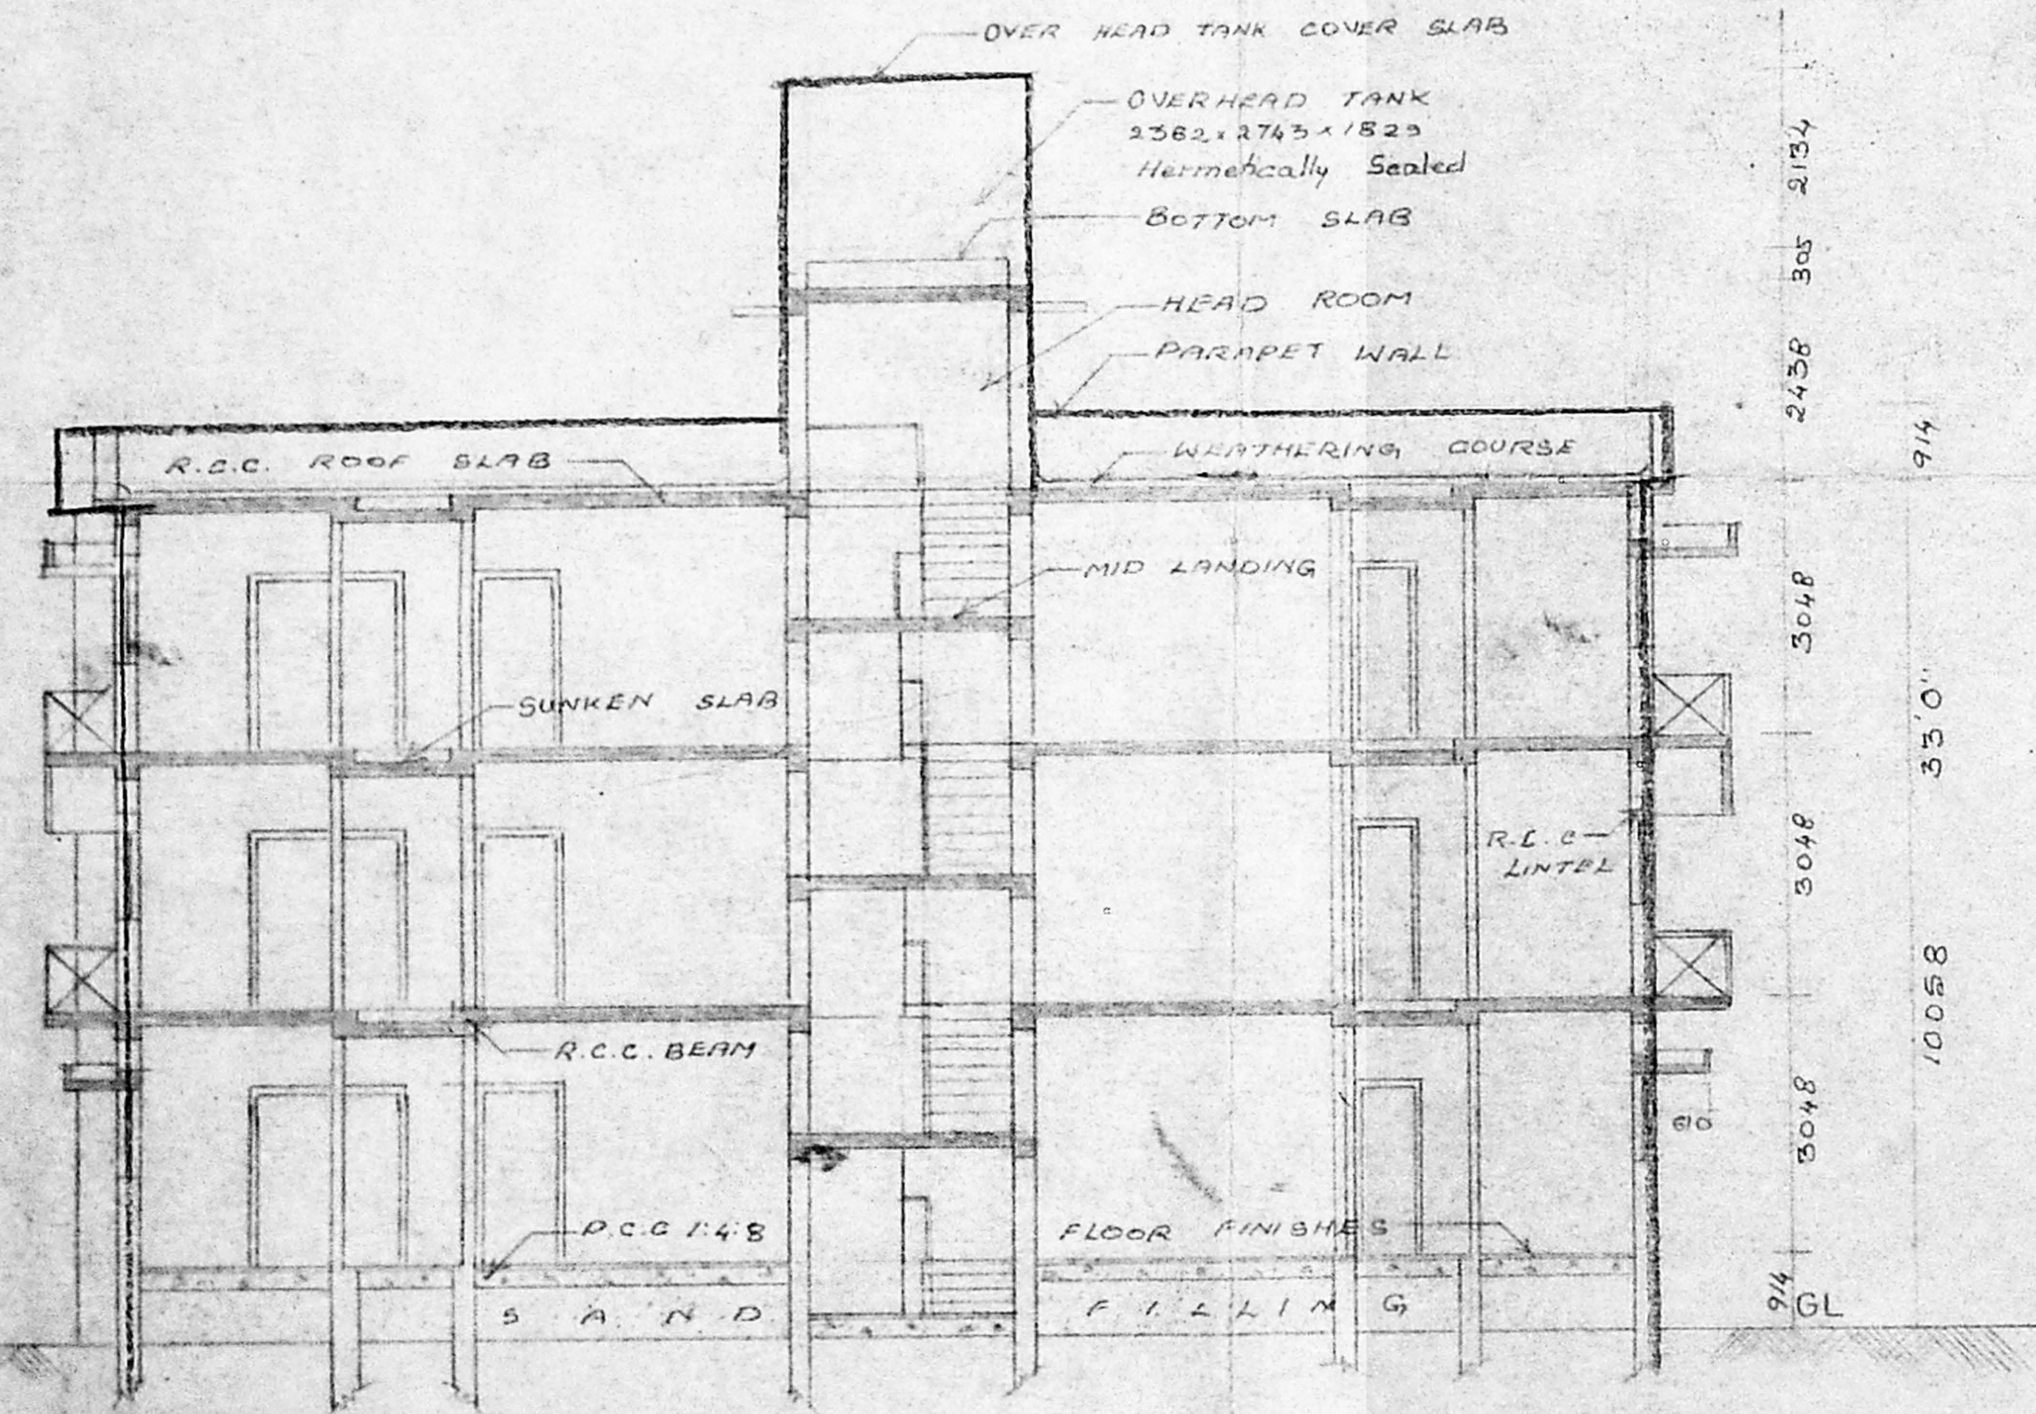 OVER HEAD TANK COVER SLAB
OVERHEAD TANK
2362 x 2743 x 1829
Hermetically Sealed
BOTTOM SLAB
HEAD ROOM
PARAPET WALL
R.C.C. ROOF SLAB
WEATHERING COURSE
MID LANDING
SUNKEN SLAB
R.C.C
LINTEL
R.C.C. BEAM
P.C.C 1:4:8
FLOOR FINISHES
SAND FILLING
GL
610
2134
305
2438
3048
3048
3048
914
914
33'0"
10058